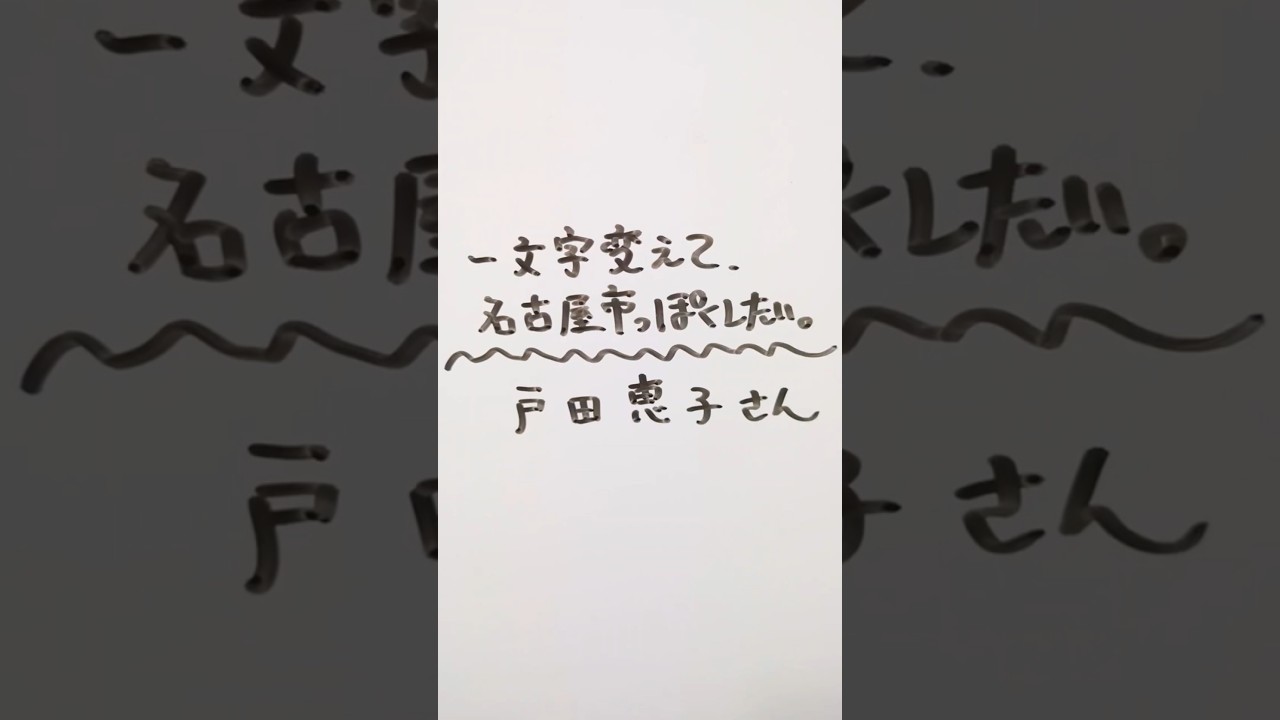 一文字変えて、
名古屋市っぽくしたい。
戸田恵子さん